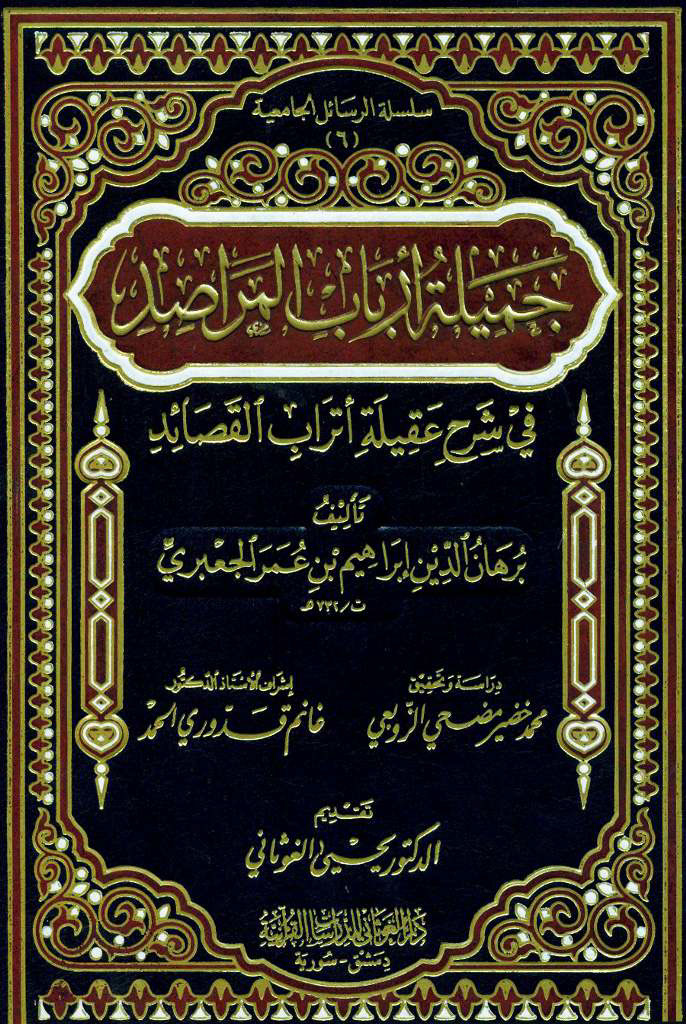 سلسلة الرسائل الجامعية
(٦)
جَمِيلَةُ أَرْبَابِ المَرَاصِدِ
فِي شَرْحِ عَقِيلَةِ أَتْرَابِ القَصَائِدِ
تَأْلِيفُ
بُرْهَانُ الدِّينِ إِبْرَاهِيم بْنِ عُمَرَ الجَعْبَرِيِّ
ت/٧٣٢هـ
دراسة وتحقيق
محمد خضير مضحي الزوبعي
إشراف الأستاذ الدكتور
غانم قدوري الحمد
تقديم
الدكتور يحيى الغوثاني
دار الغوثاني للدراسات القرآنية
دمشق - سورية